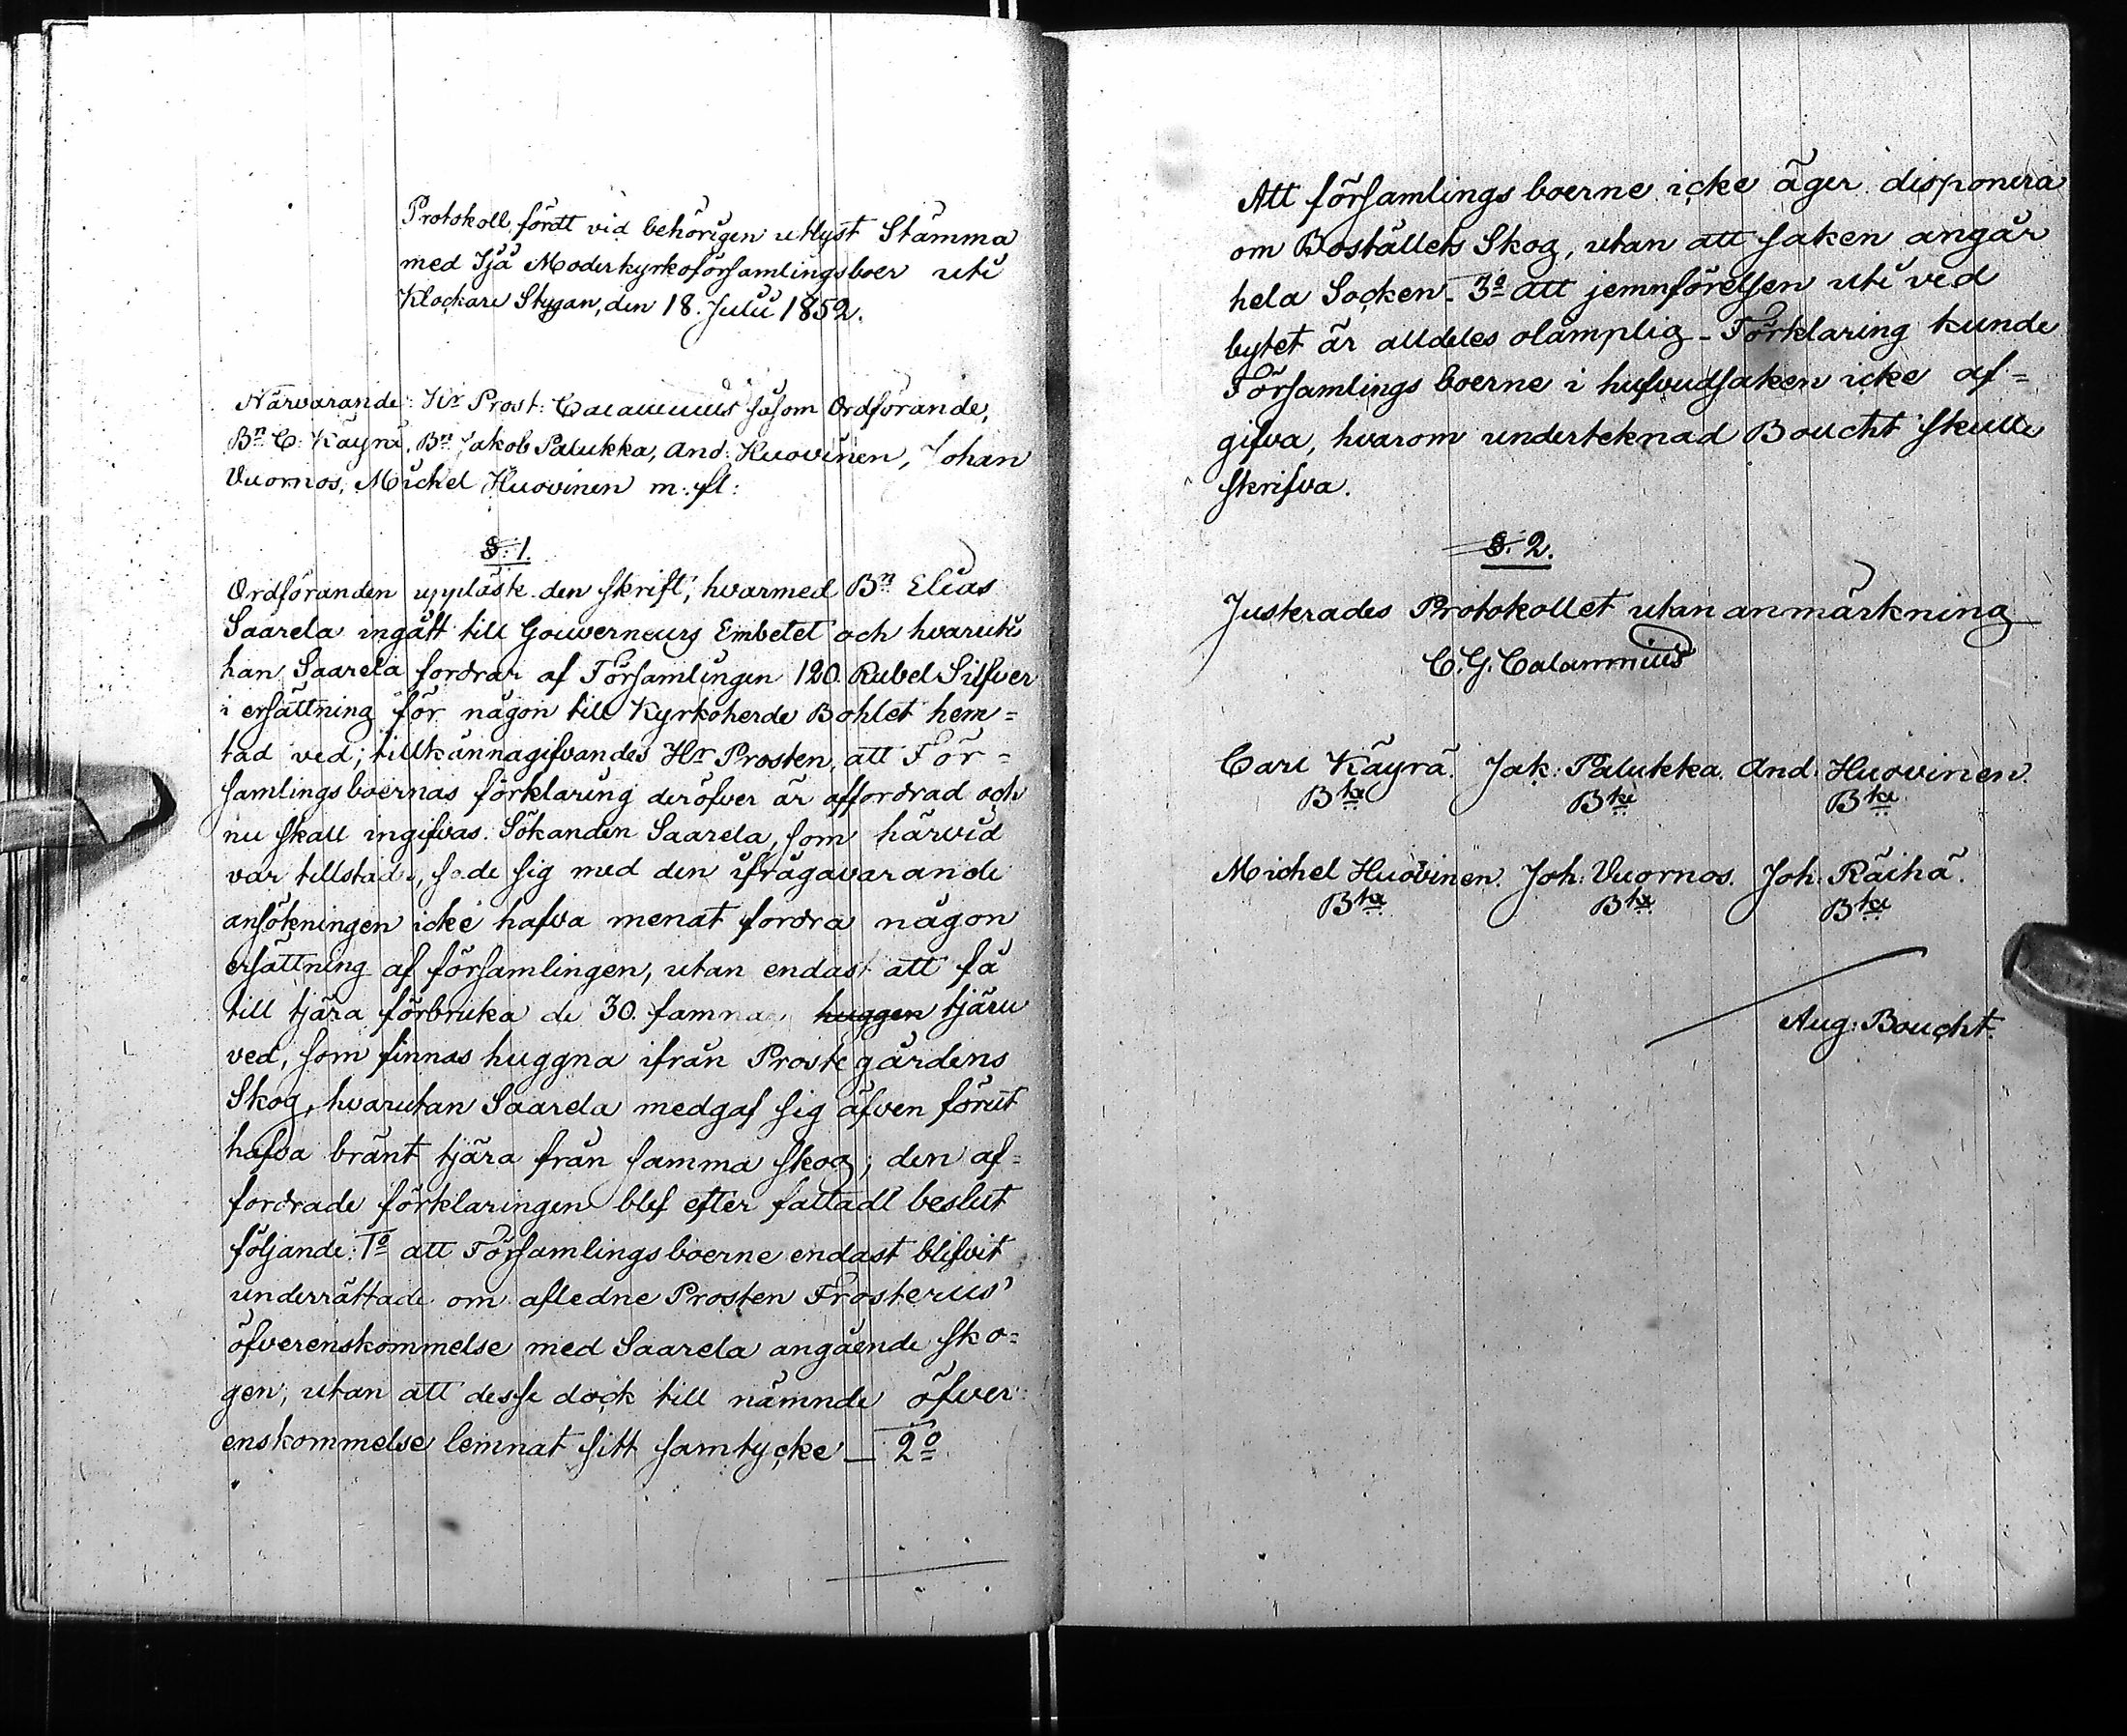 Protokoll, fördt vid behörigen utlyst Stämma
med Ijå Moderkyrkoförsamlingsboer uti
Klockare Stugan, den 18. Julii 1852.
Närvarande: Hr Prost: Calamnius såsom Ordförande,
Bn C: Käyrä, Bn Jakob Palukka, And: Huovinen, Johan
Vuornos, Michel Huovinen m: fl:
§: 1.
Ordföranden uppläste den skrift, hvarmed Bn Elias
Saarela ingått till Gouverneurs Embetet och hvaruti
han Saarela fordrar af Församlingen 120. Rubel Silfver
i ersättning för någon till Kyrkoherde Bohlet hem=
tad ved; tillkännagifvandes Hr Prosten, att För=
samlingsboernas förklaring deröfver är affordrad och
nu skall ingifvas. Sökanden Saarela, som härvid
var tillstädes, sade sig med den ifrågavarande
ansökningen icke hafva menat fordra någon
ersättning af församlingen, utan endast att få
till tjära förbruka de 30. famnar huggen tjäru
ved, som finnas huggna ifrån Prostegårdens
Skog, hvarutan Saarela medgaf sig äfven förut
hafva bränt tjära från samma skog; den af=
fordrade förklaringen blef efter fattadt beslut
följande: 1o att Församlingsboerne endast blifvit
underrättade om afledne Prosten Frosterus'
öfverenskommelse med Saarela angående sko=
gen, utan att desse dock till nämnde öfver=
enskommelse lemnat sitt samtycke _ 2o
Att församlings boerne icke äger disponera
om Boställets Skog, utan att saken angår
hela Socken _ 3o att jemnförelsen uti ved
bytet är alldeles olämplig _ Förklaring kunde
Församlings boerne i hufvudsaken icke af=
gifva, hvarom underteknad Boucht skulle
skrifva.
§. 2.
Justerades Protokollet utan anmärkning
C. G. Calamnius
Carl Käyrä. Jak: Palukka. And: Huovinen.
Bka Bka Bka
Michel Huovinen. Joh: Vuornos. Joh: Räihä.
Bka Bka Bka
Aug: Boucht.